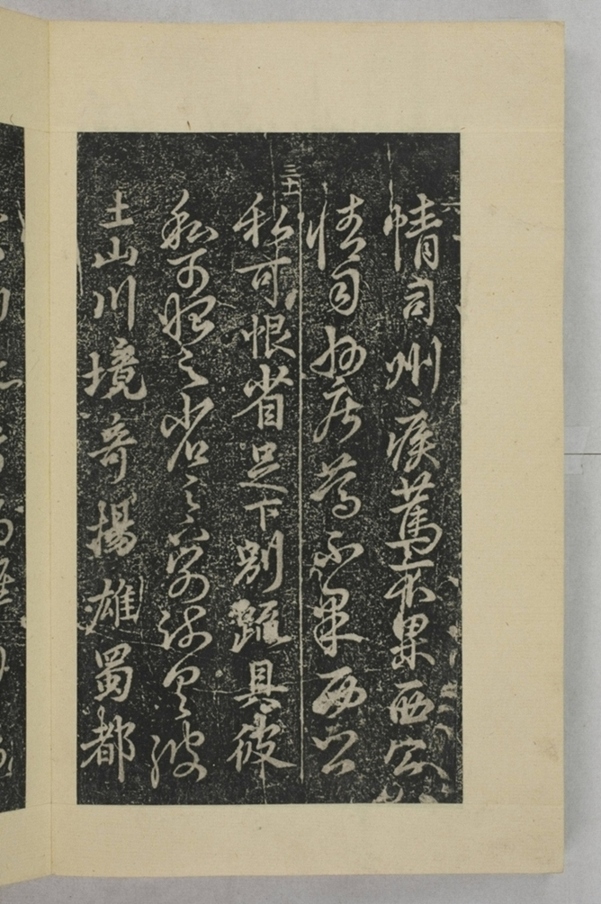 六
情司州疾篤不果西公
情司州疾篤不果西公
私可恨省足下別疏具彼
私可恨省足下別疏具彼
土山川境奇揚雄蜀都